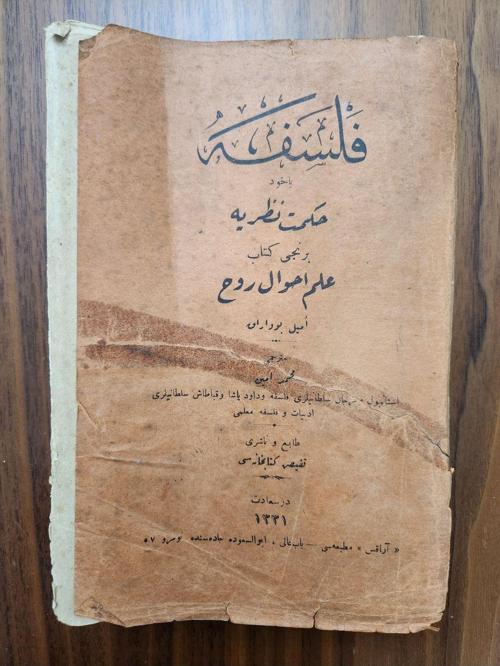 فلسفه
یاخود
حكمت نظریه
برنجی كتاب
علم احوال روح
امیل بوواراق
مترجمی
محمد امین
استانبول - مرجان سلطانیلری فلسفه وداود پاشا وقباطاش سلطانیلری
ادبیات و فلسفه معلمی
طابع و ناشری
كتابخانه سی
در سعادت
١٣٣١
« آراقس » مطبعه‌سی — باب عالی ، ابوالسعود جاده‌سنده نومرو ٥٧